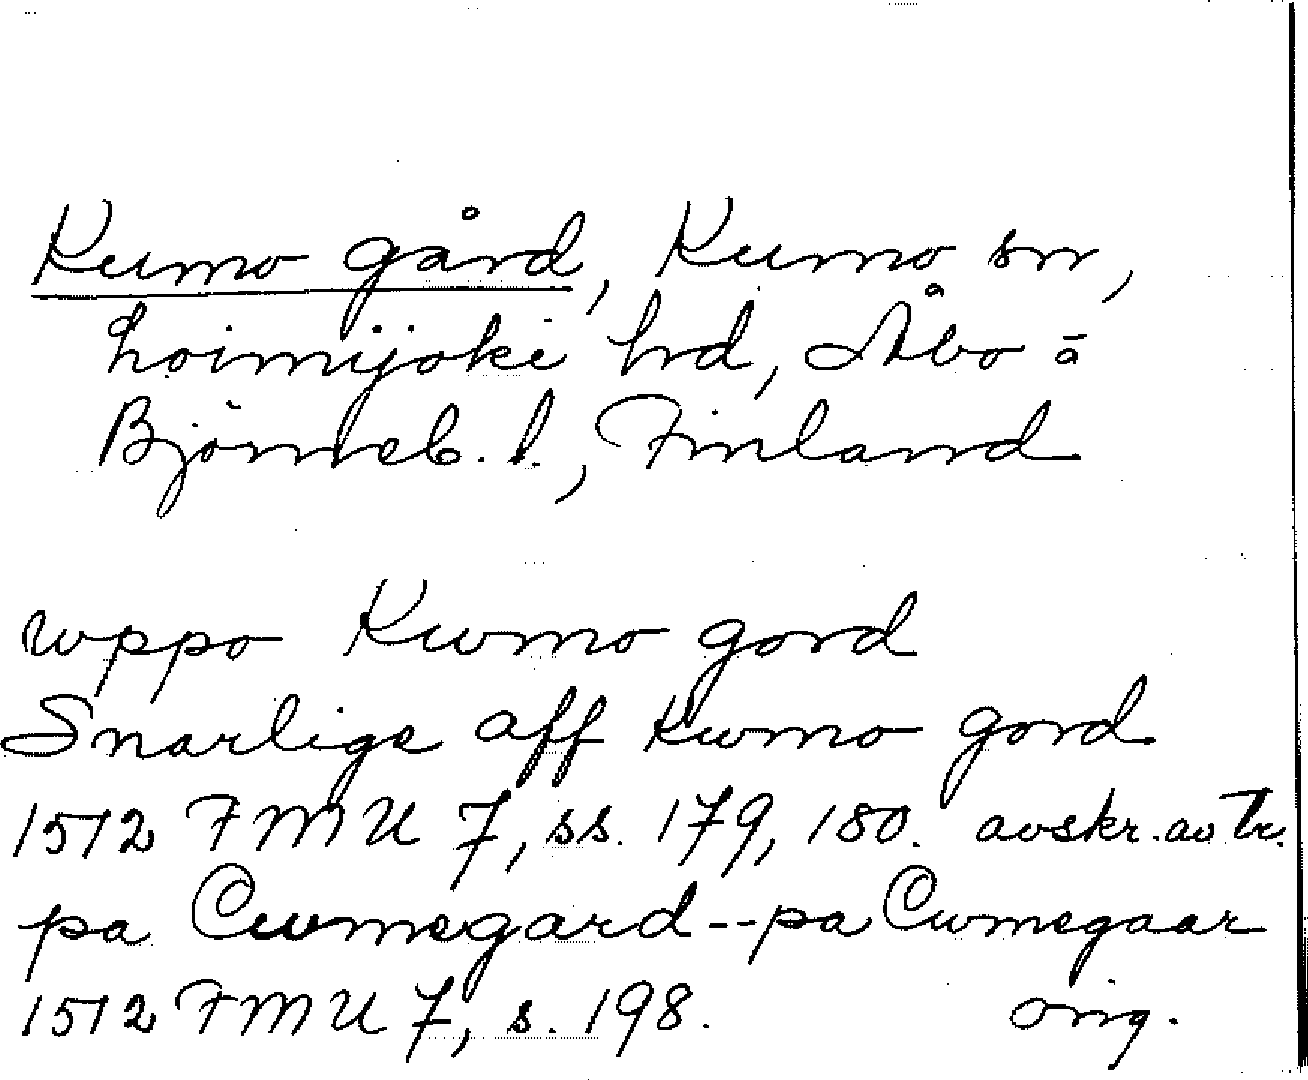 Kumo gård, Kumo sn,
Loimijoki hd, Åbo o
Björneb. l., Finland
wppo Kwmo gord
Snarlige aff Kwmo gord
1512 FMU 7, ss. 179, 180. avskr. av tr.
pa Cwmegard -- pa Cwmegaar
1512 FMU 7, s. 198. orig.